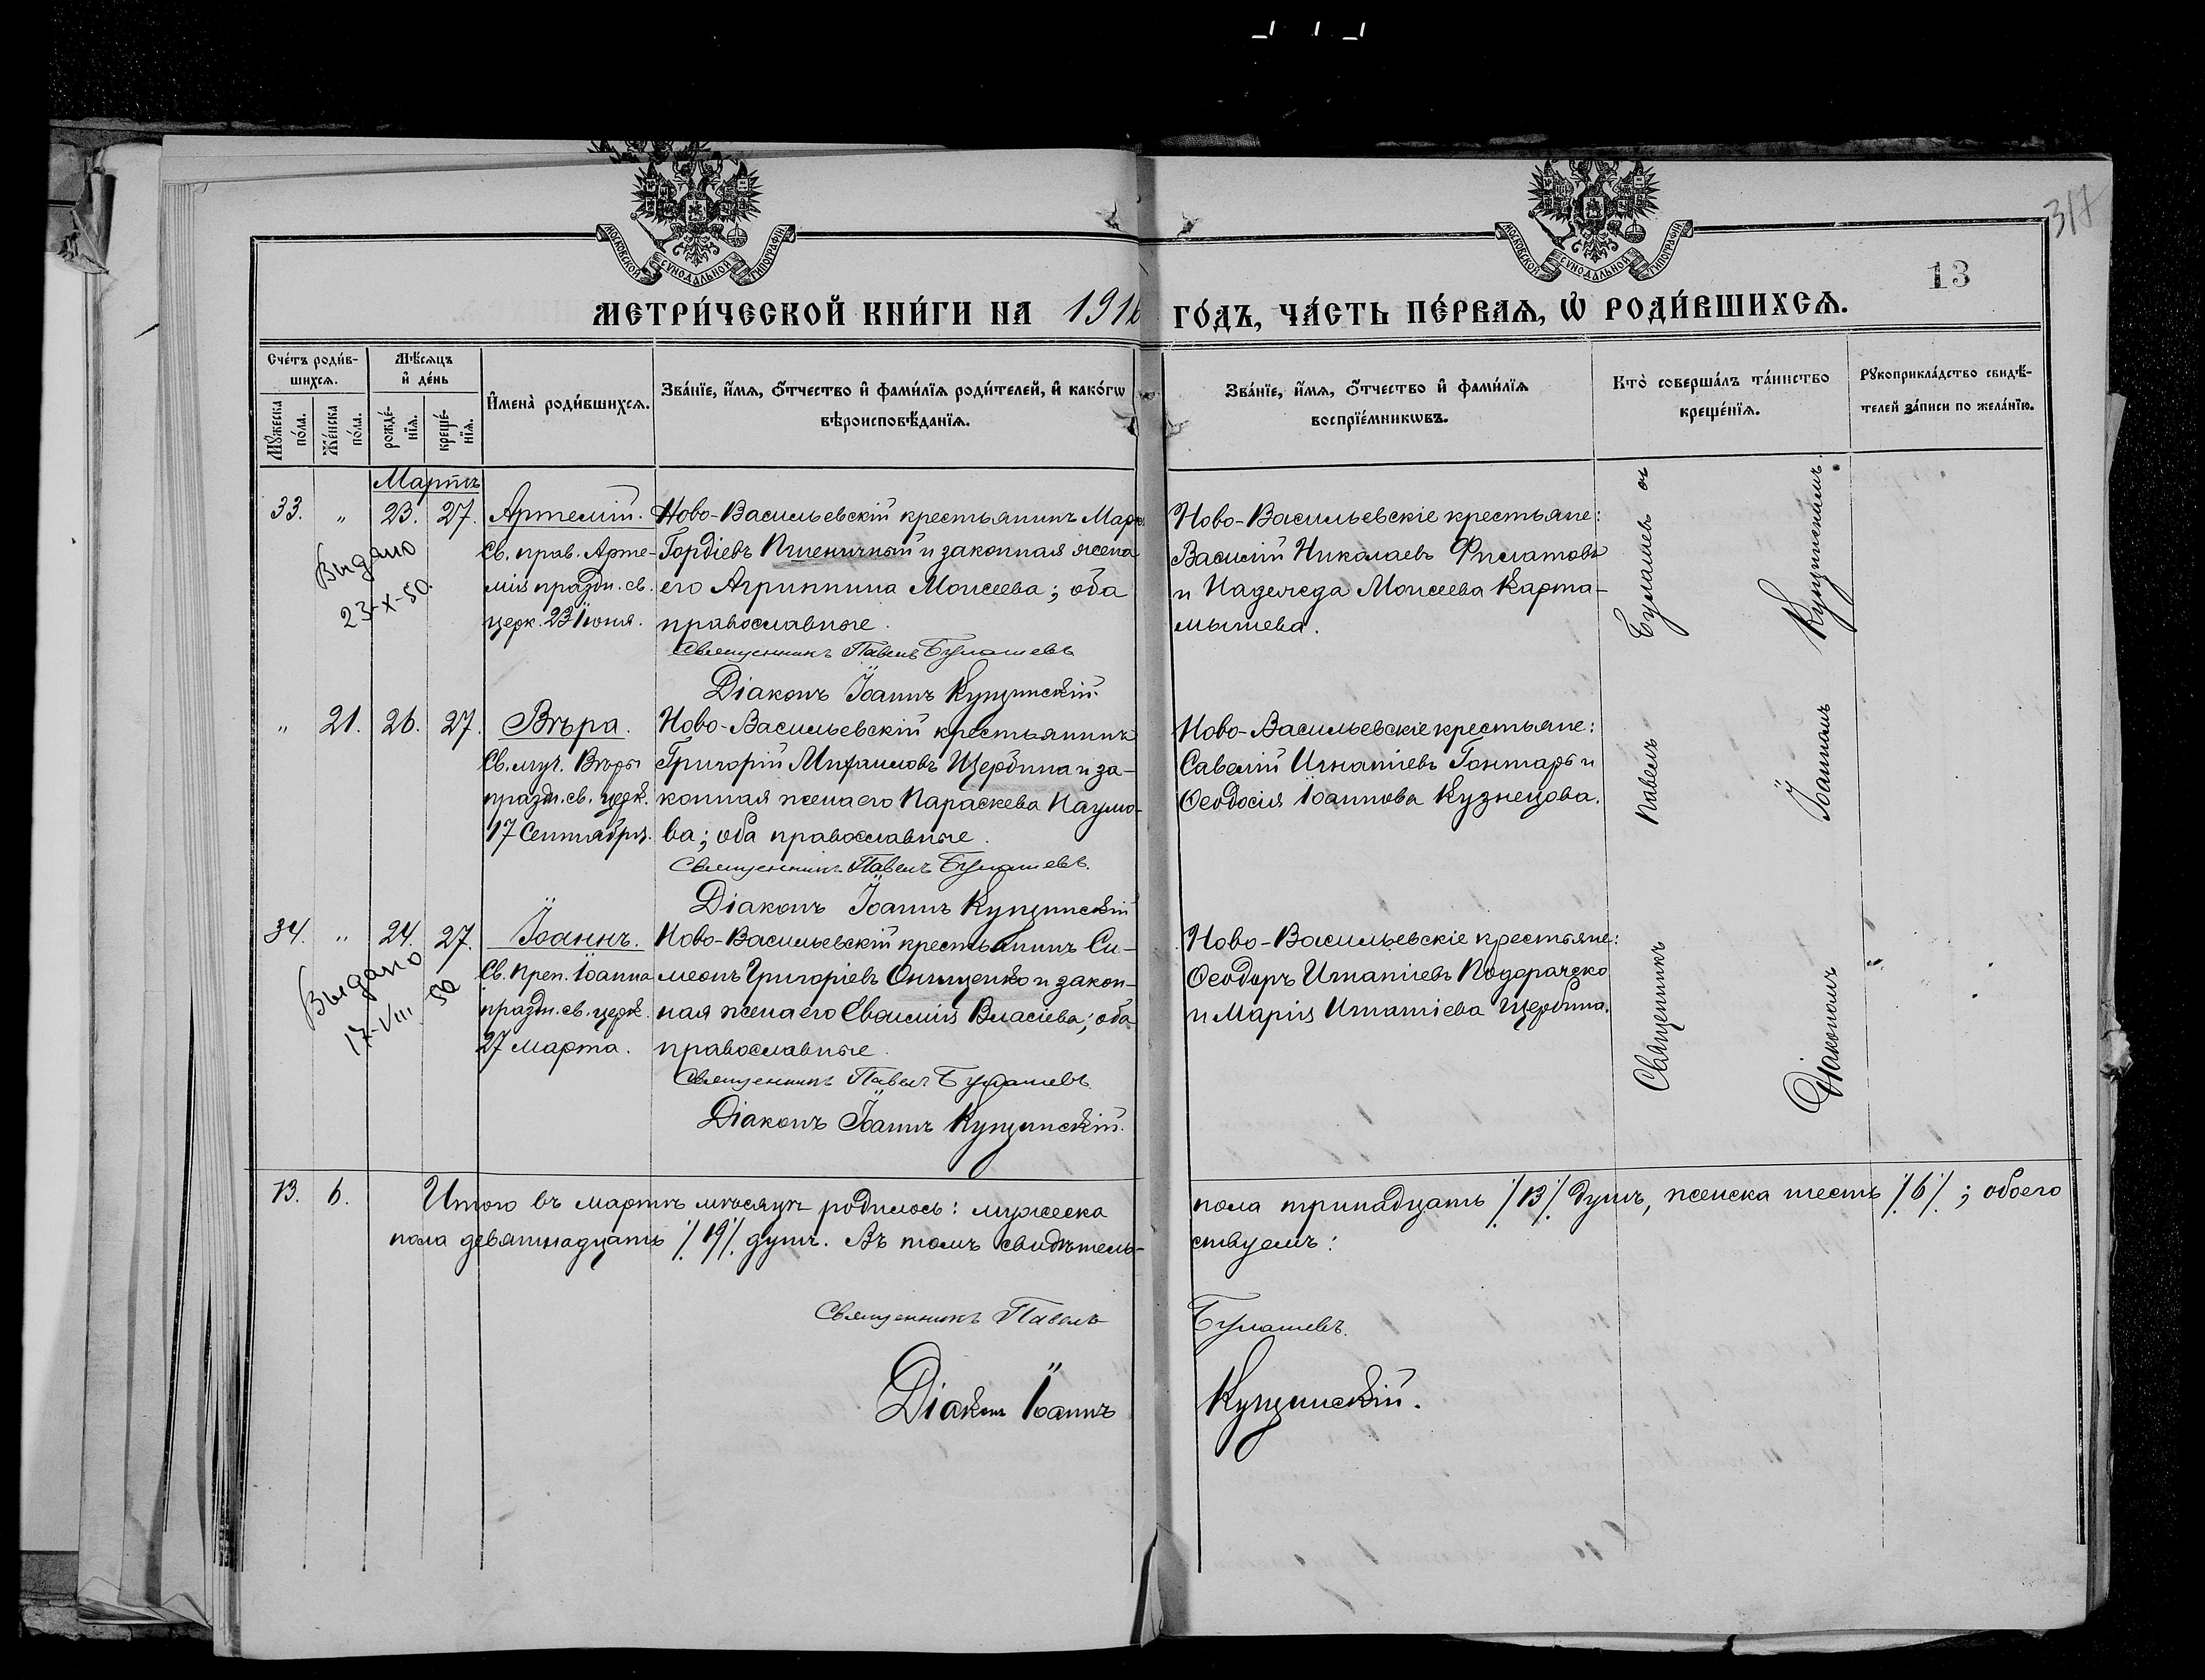 317
МОСКОВСКОЙ СУНОДАЛЬНОЙ ТИПОГРАФІИ
МОСКОВСКОЙ СУНОДАЛЬНОЙ ТИПОГРАФІИ
13
МЕТРИ́ЧЕСКОЙ КНИ́ГИ НА 1916 ГО́ДЪ, ЧА́СТЬ ПЕ́РВАѦ, Ѡ҆ РОДИ́ВШИХСѦ.
Сче́тъ роди́в-
шихсѧ.
Мꙋ́жеска по́ла.
Же́нска по́ла.
Мѣ́сѧцъ
и҆ де́нь
рожде́-
нїѧ.
креще́-
нїѧ.
И҆мена̀ роди́вшихсѧ.
Зва́нїе, и҆́мѧ, ѻ҆́тчество и҆ фами́лїѧ роди́телей, и҆ како́гѡ
вѣроисповѣ́данїѧ.
Зва́нїе, и҆́мѧ, ѻ҆́тчество и҆ фами́лїѧ
воспрїе́мникѡвъ.
Кто̀ соверша́лъ та́инство
креще́нїѧ.
Рꙋкоприкла́дство свидѣ́-
телей за́писи по жела́нїю.
Мартъ
33. " 23. 27.
Выдано
23-X-50.
Артемій.
Св. прав. Арте-
мія праздн. св.
церк. 23 Іюня.
Ново-Васильевскій крестьянинъ Марк
Гордіевъ Пшеничный и законная жена
его Агриппина Моисеева; оба
православные.
Священникъ Павелъ Булашевъ
Діаконъ Іоаннъ Кущинскій.
Ново-Васильевскіе крестьяне:
Василій Николаевъ Филатовъ
и Надежда Моисеева Карта-
мышева.
" 21. 26. 27.
Вѣра.
Св. муч. Вѣры
праздн. св. церк.
17 Сентября.
Ново-Васильевскій крестьянинъ
Григорій Михаиловъ Щербина и за-
конная жена его Параскева Наумо-
ва; оба православные.
Священникъ Павелъ Булашевъ.
Діаконъ Іоаннъ Кущинскій
Ново-Васильевскіе крестьяне:
Савелій Игнатіевъ Гонтарь и
Ѳеодосія Іоаннова Кузнецова.
34. " 24. 27.
Выдано
17-VIII 56
Іоаннъ.
Св. Преп. Іоанна
праздн. св. церк.
27 Марта.
Ново-Васильевскій крестьянинъ Си-
меонъ Григоріевъ Онищенко и закон-
ная жена его Евѳимія Власіева; оба
православные.
Священникъ Павелъ Булашевъ
Діаконъ Іоаннъ Кущинскій.
Ново-Васильевскіе крестьяне:
Ѳеодоръ Игнатіевъ
и Марія Игнатіева Щербина.
Священникъ Павелъ Булашевъ съ
Діакономъ Іоанномъ Кущинскимъ.
13. 6. Итого въ мартѣ мѣсяцѣ родилось: мужеска пола тринадцать /13/ душъ, женска шесть /6/; обоего
пола девятнадцать /19/ душъ. Въ томъ свидѣтель-ствуемъ:
Священникъ Павелъ Булашевъ.
Діаконъ Іоаннъ Кущинскій.